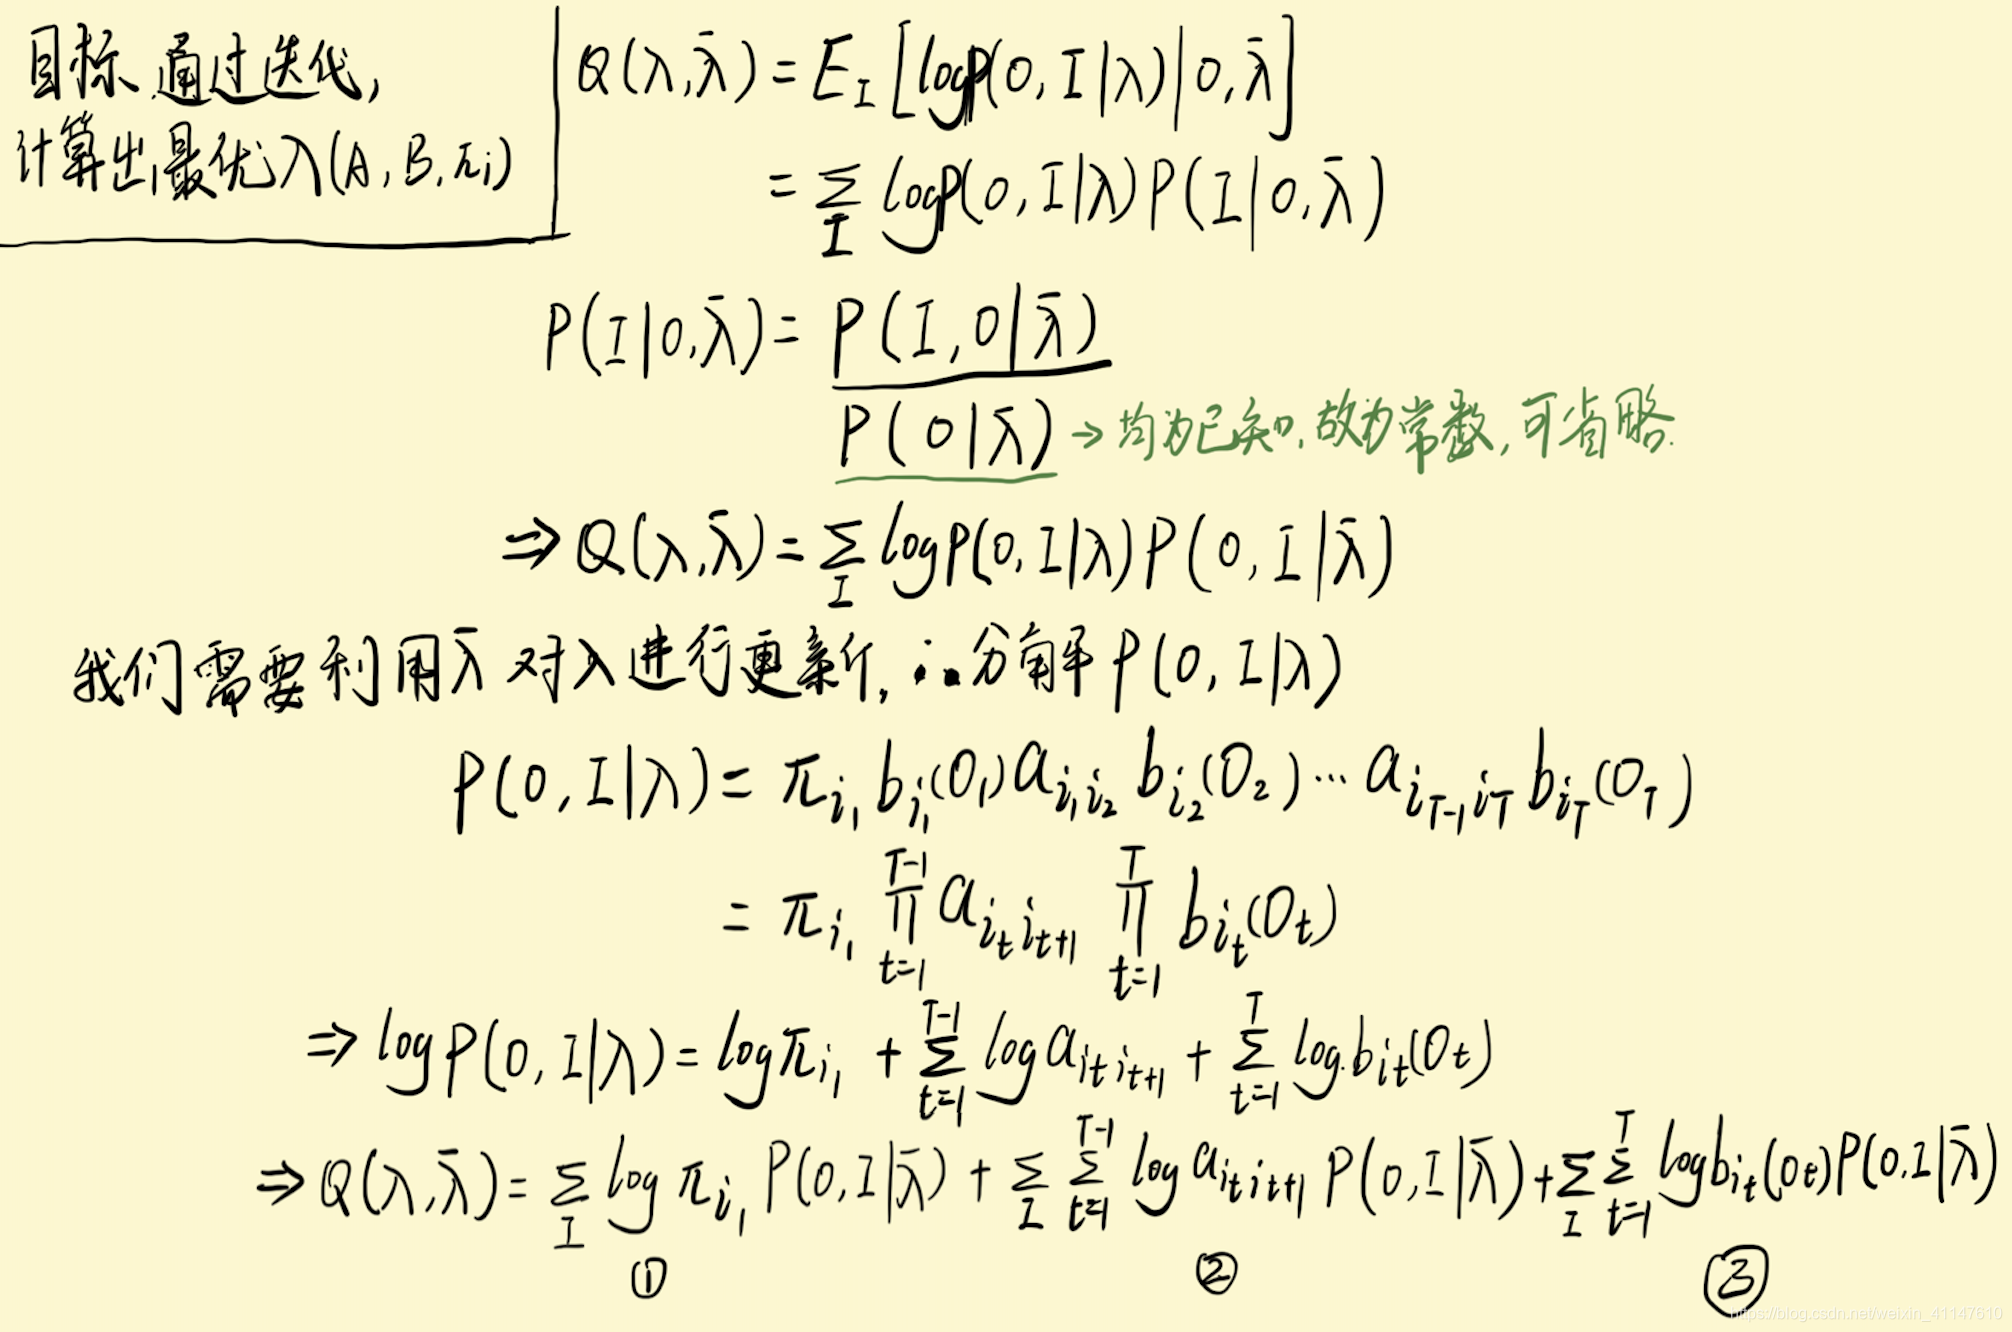 目标:通过迭代,
计算出最优λ(A, B, πi)
Q(λ,λ̄) = E_I[logP(O,I|λ)|O,λ̄]
= Σ_I logP(O,I|λ)P(I|O,λ̄)
P(I|O,λ̄) = P(I,O|λ̄)
P(O|λ̄) → 均为已知,故为常数,可省略.
⇒ Q(λ,λ̄) = Σ_I logP(O,I|λ)P(O,I|λ̄)
我们需要利用λ̄对λ进行更新,∴分解P(O,I|λ)
P(O,I|λ) = π_{i_1} b_{i_1}(O_1) a_{i_1 i_2} b_{i_2}(O_2) ⋯ a_{i_{T-1} i_T} b_{i_T}(O_T)
= π_{i_1} ∏_{t=1}^{T-1} a_{i_t i_{t+1}} ∏_{t=1}^{T} b_{i_t}(O_t)
⇒ logP(O,I|λ) = logπ_{i_1} + Σ_{t=1}^{T-1} log a_{i_t i_{t+1}} + Σ_{t=1}^{T} log b_{i_t}(O_t)
⇒ Q(λ,λ̄) = Σ_I log π_{i_1} P(O,I|λ̄) + Σ_I Σ_{t=1}^{T-1} log a_{i_t i_{t+1}} P(O,I|λ̄) + Σ_I Σ_{t=1}^{T} log b_{i_t}(O_t) P(O,I|λ̄)
① ② ③
https://blog.csdn.net/weixin_41147610